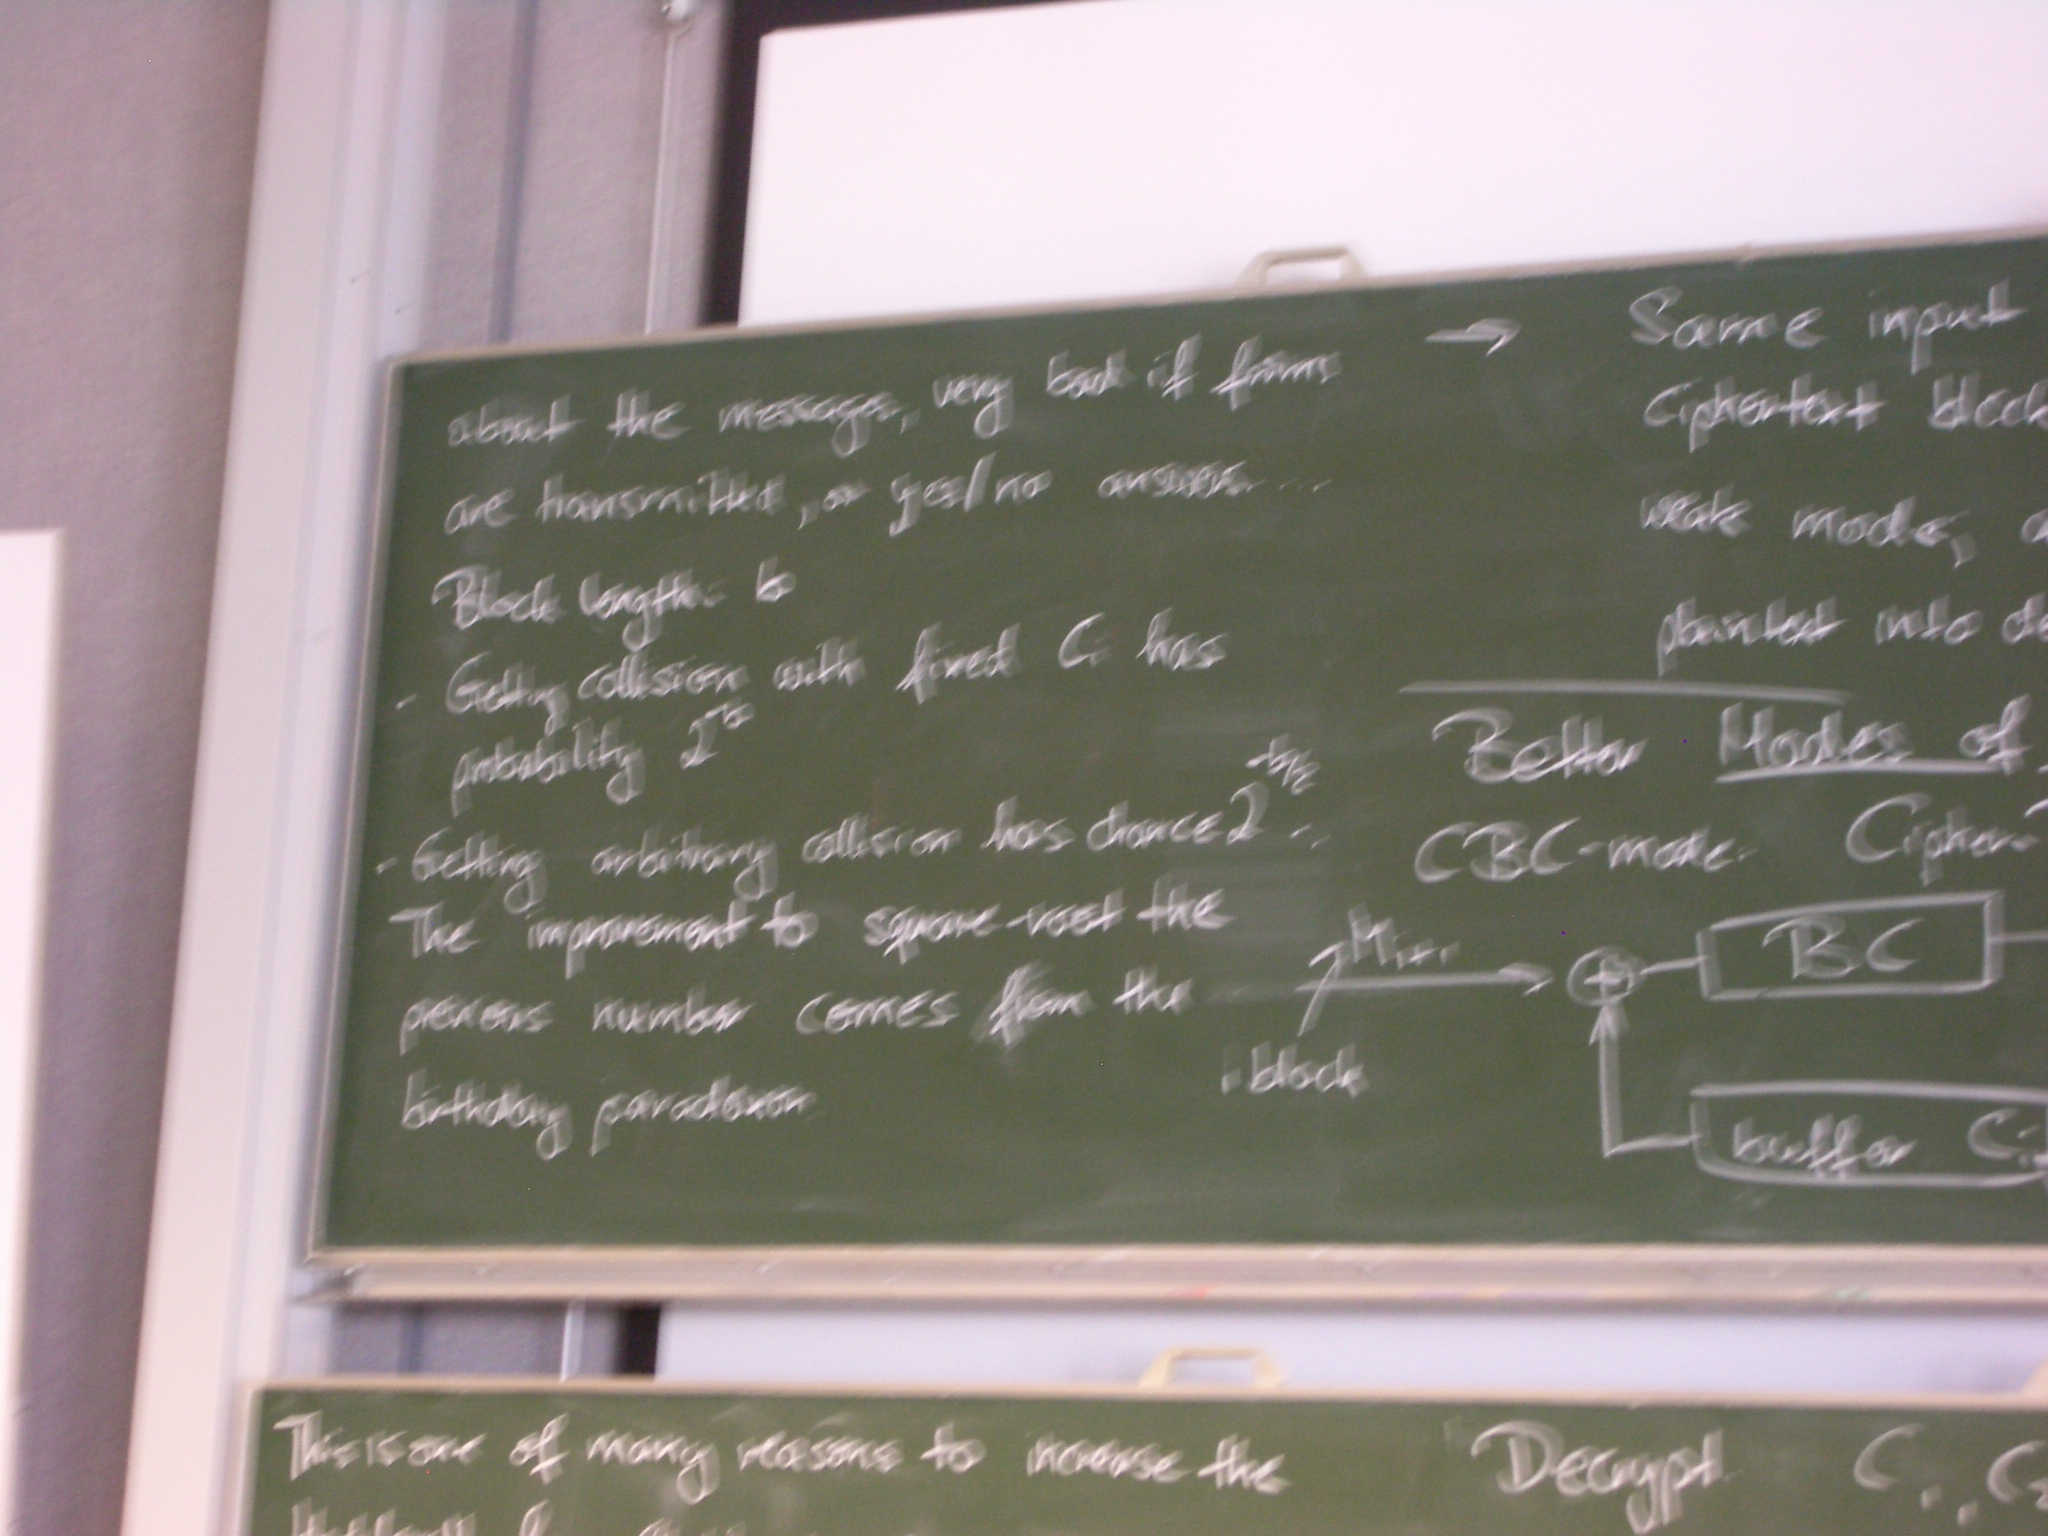 about the messages, very bad if forms
are transmitted, or yes/no answers...
Block length: b
- Getting collision with fixed Ci has
probability 2^-b
- Getting arbitrary collision has chance 2^-b/2 ..
The improvement to square-root the
previous number comes from the
birthday paradoxon
→ Same input
Ciphertext block
weak mode,
painted into
Better Modes of
CBC-mode. Cipher
M i+1
1 block
⊕
BC
buffer Ci
This is one of many reasons to increase the
Decrypt C1, C2